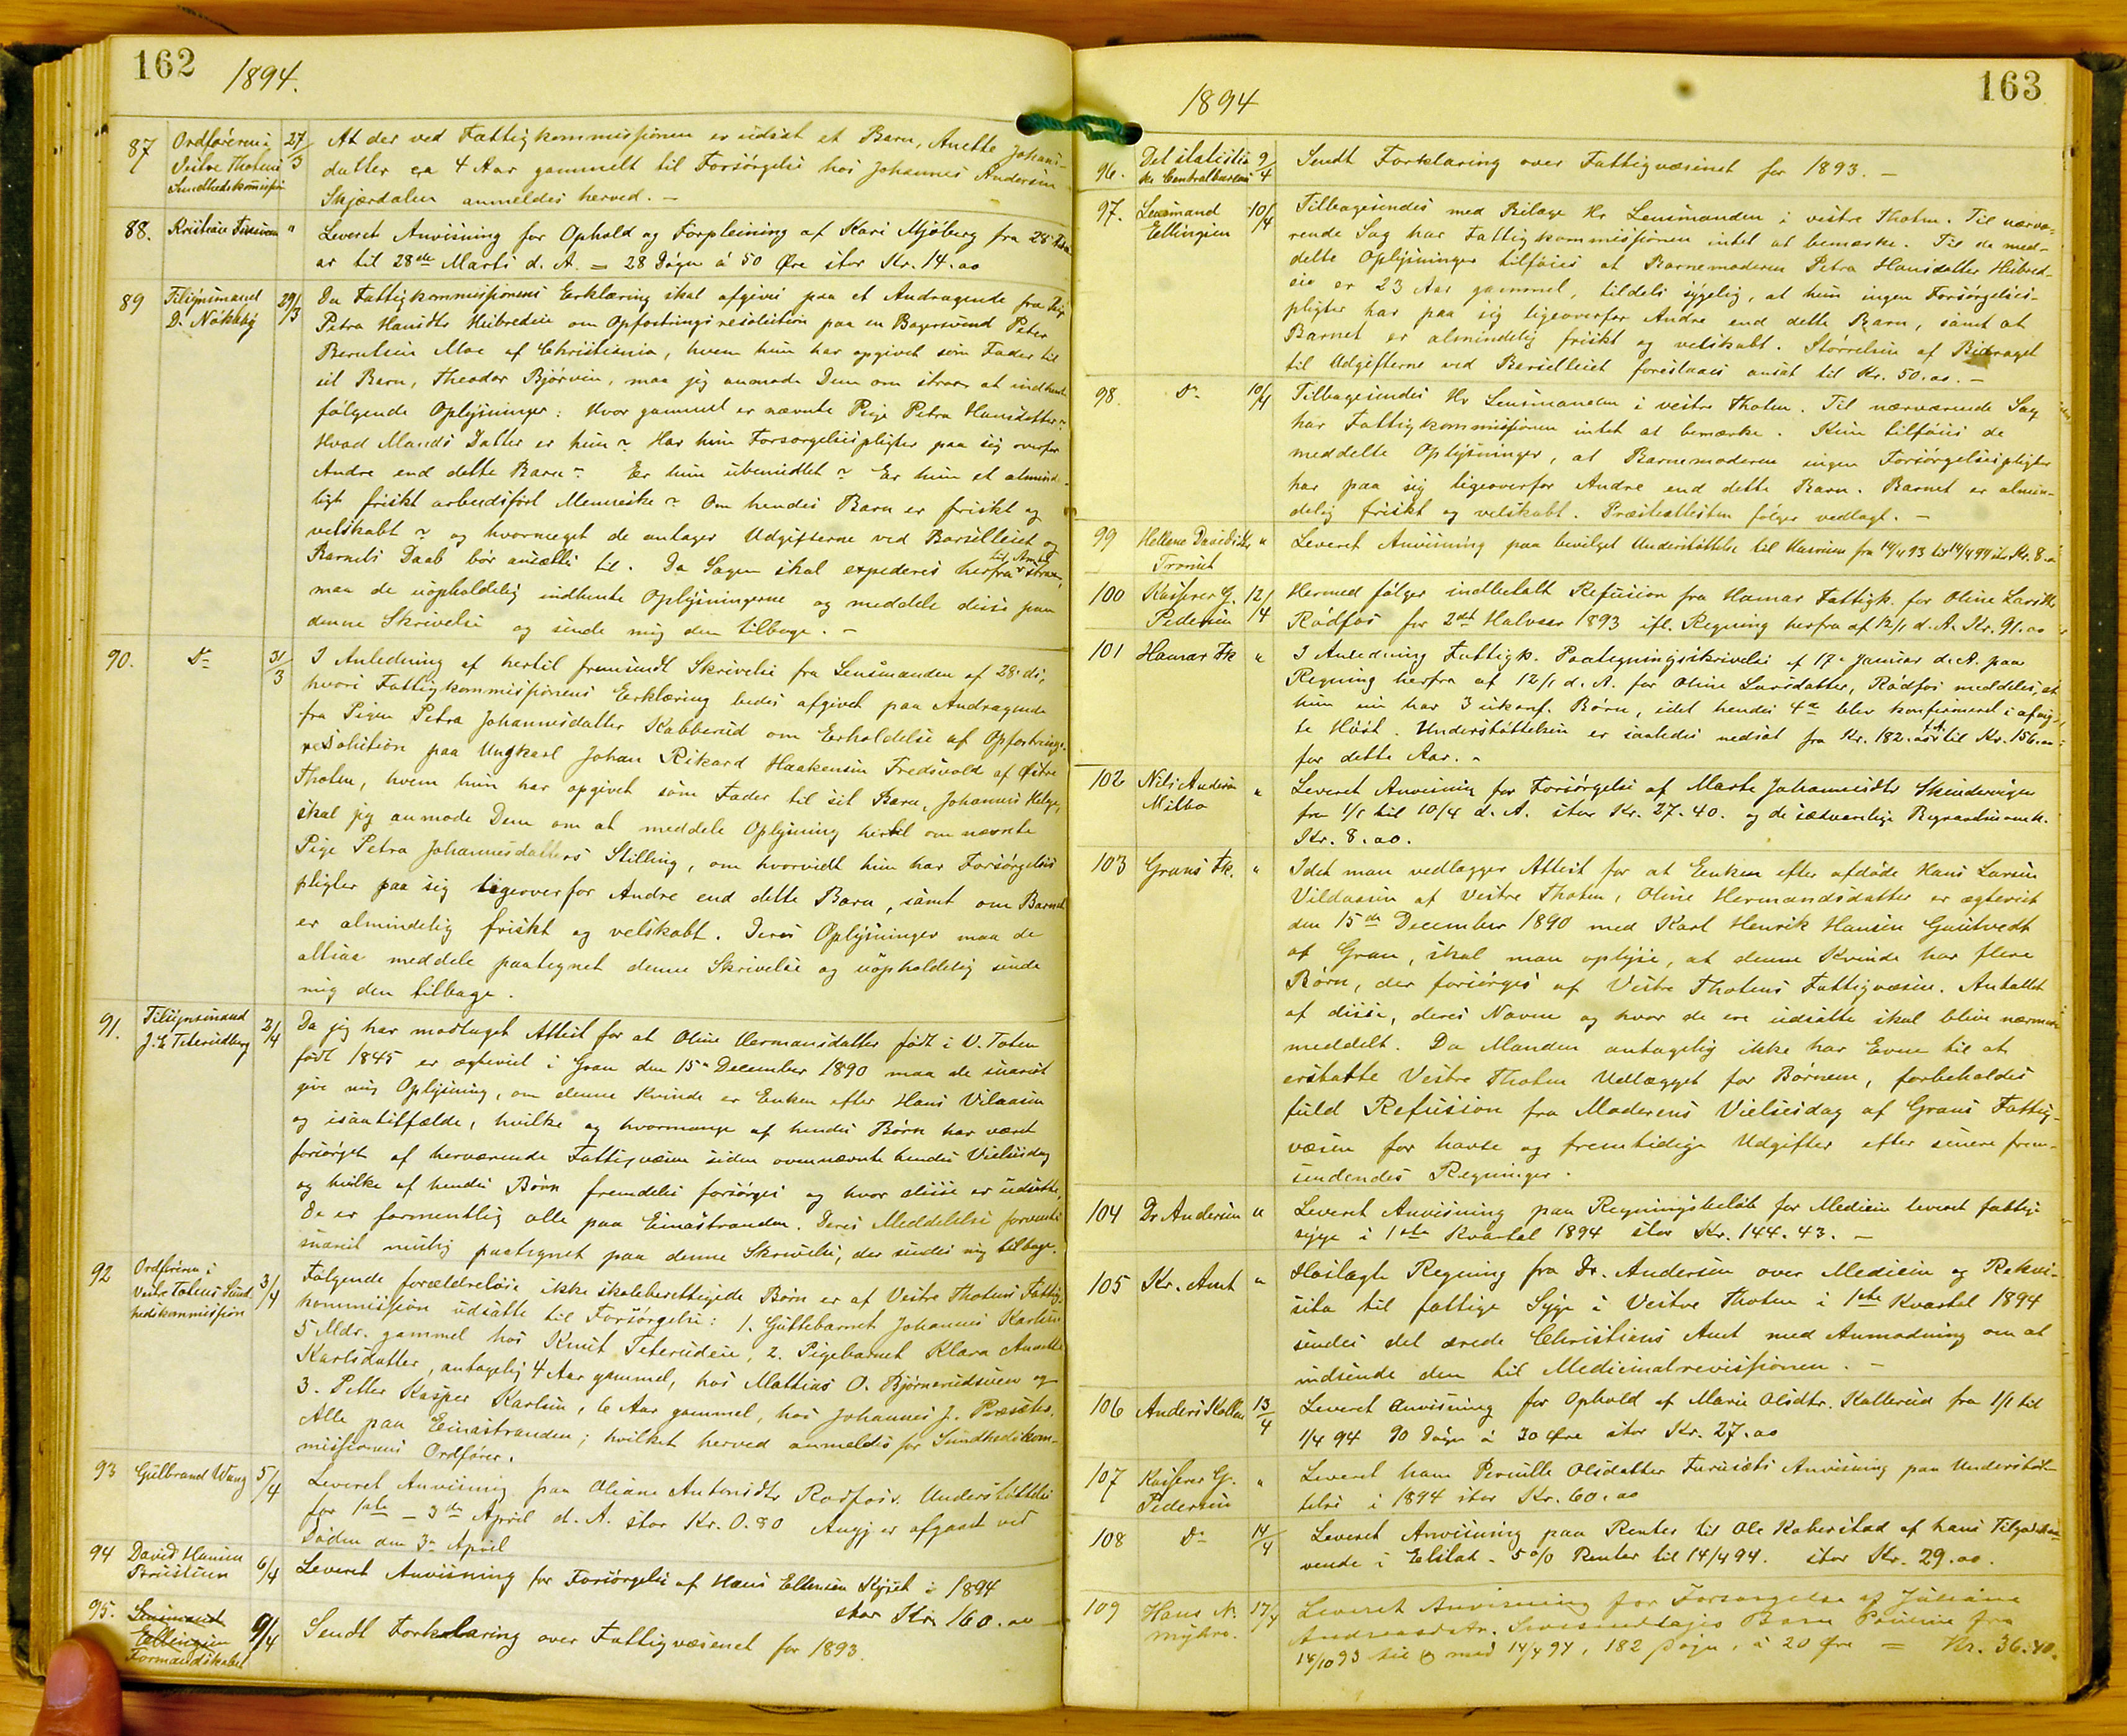 162
1894.
87 Ordføreren i 27/3 At der ved Fattigkommissionen er udsat et Barn, Anette Johans-
Vestre Thotens datter ca 4 Aar gammelt til Forsørgelse hos Johannes Andersen
Sundhedskommission Skjærdalen anmeldes herved. –
88. Kristian " Leveret Anvisning for Ophold og Forpleining af Kari Mjøberg fra 28
ar til 28de Marts d. A. = 28 Døgn á 50 Øre stor Kr. 14.00
89 Tilsynsmand 29/3 Da Fattigkommissionens Erklæring skal afgives paa et Andragende fra Pige
D. Nøkleby Petra Hansdtr Heibredeie om Opfostringsresolution paa en Bagersvend Peter
Berntsen Moe af Christiania, hvem hun har opgivet som Fader til
sit Barn, Theodor Bjørvin, maa jeg anmode Dem om strax at indhente
følgende Oplysninger: Hvor gammel er nævnte Pige Petra Hansdatter?
Hvad Mands Datter er hun? Har hun Forsørgelsespligter paa sig overfor
Andre end dette Barn? Er hun ubemidlet? Er hun et alminde-
ligt friskt arbeidsført Menneske? Om hendes Barn er friskt og
velskabt? og hvormeget de antager Udgifterne ved Barselleiet og
Barnets Daab bør ansættes til. Da Sagen skal expederes herfra til Amtet strax,
maa de uopholdelig indhente Oplysningerne og meddele disse paa
denne Skrivelse og sende mig den tilbage. –
90. Do 31/3 I Anledning af hertil fremsendt Skrivelse fra Lensmanden af 28. ds;
hvori Fattigkommissionens Erklæring bedes afgivet paa Andragende
fra Pigen Petra Johannesdatter Kabberud om Erholdelse af Opfostrings-
resolution paa Ungkarl Johan Rikard Haakensen Fredsvold af Østre
Thoten, hvem hun har opgivet som Fader til sit Barn, Johannes Helge,
skal jeg anmode Dem om at meddele Oplysning hertil om nævnte
Pige Petra Johannesdatters Stilling, om hvorvidt hun har Forsørgelses
pligter paa sig ligeoverfor Andre end dette Barn, samt om Barnet
er almindelig friskt og velskabt. Deres Oplysninger maa de
altsaa meddele paategnet denne Skrivelse og uopholdelig sende
mig den tilbage.
91. Tilsynsmand 2/4 Da jeg har modtaget Attest for at Oline Hermansdatter født i V. Toten
J. E Teterudberg født 1845 er ægteviet i Gran den 15de December 1890 maa de snarest
give mig Oplysning, om denne Kvinde er Enken efter Hans Vildaasen
og isaatilfælde, hvilke og hvormange af hendes Børn har været
forsørget af herværende Fattigvæsen siden ovennævnte hendes Vielsesdag
og hvilke af hendes Børn fremdeles forsørges og hvor disse er udsatte,
De er formentlig alle paa Einastranden. Deres Meddelelse forventes
snarest mulig paategnet paa denne Skrivelse, der sendes mig tilbage.
92 Ordføreren i 3/4 Følgende forældreløse ikke skoleberettigede Børn er af Vestre Thotens Fattig-
Vestre Totens Sund- kommission udsatte til Forsørgelse: 1. Guttebarnet Johannes Karlsen
hedskommission 5 Mdr. gammel hos Knut Teterudeie, 2. Pigebarnet Klara Anette
Karlsdatter, antagelig 4 Aar gammel, hos Mathias O. Bjørnerudsveen og
3. Petter Kasper Karlsen, 6 Aar gammel, hos Johannes J. Præsæter.
Alle paa Einastranden; hvilket herved anmeldes for Sundhedskom-
missionens Ordfører.
93 Gulbrand Wang 5/4 Leveret Anvisning paa Oliane Antonsdtr Rødfoss. Understøttelse
for 1ste – 3de April d. A. stor Kr. 0.80 Angj er afgaaet ved
Døden den 3de April
94 David Hansen 6/4 Leveret Anvisning for Forsørgelse af Hans Ellensen Kyset i 1894
stor Kr. 160.00
95. Lensmand 9/4 Sendt Forklaring over Fattigvæsenet for 1893.
Ellingsen
Formandskabet
163
1894
96. Det statisti- 9/4 Sendt Forklaring over Fattigvæsenet for 1893. –
ske Centralbureau
97. Lensmand 10/4 Tilbagesendes med Bilage Hr Lensmanden i vestre Thoten. Til nærvæ-
Ellingsen rende Sag har Fattigkommissionen intet at bemærke. Til de med-
delte Oplysninger tilføies at Barnemoderen Petra Hansdatter Heibred-
eie er 23 Aar gammel, tildels sygelig, at hun ingen Forsørgelses-
pligter har paa sig ligeoverfor Andre end dette Barn, samt at
Barnet er almindelig friskt og velskabt. Størrelsen af Bidraget
til Udgifterne ved Barselleiet foreslaaes ansat til Kr. 50.00. –
98. Do 10/4 Tilbagesendes Hr Lensmanden i vestre Thoten. Til nærværende Sag
har Fattigkommissionen intet at bemærke. Kun tilføies de
meddelte Oplysninger, at Barnemoderen ingen Forsørgelsespligter
har paa sig ligeoverfor Andre end dette Barn. Barnet er almin-
delig friskt og velskabt. Præsteattesten følger vedlagt. –
99 Hellene Davidsdtr " Leveret Anvisning paa bevilget Understøttelse til fra 14/4 93 til 14/4 94 stor Kr. 8.00
100 Kasserer G. 12/4 Hermed følger indbetalt Refusion fra Hamar Fattigk. for Oline Larsdtr
Pedersen Rødfos for 2det Halvaar 1893 ifl. Regning herfra af 12/1 d. A. Kr. 91.00
101 Hamar Fk " I Anledning Fattigk. Paategningsskrivelse af 17de Januar d. A. paa
Regning herfra af 12/1 d. A. for Oline Larsdatter, Rødfos meddeles, at
hun nu har 3 ukonf. Børn, idet hendes 4de blev konfirmeret i afvig-
te Høst. Understøttelsen er saaledes nedsat fra Kr. 182.00 til Kr. 156.00
for dette Aar. –
102 Nils Anderson " Leveret Anvisning for Forsørgelse af Marte Johannesdtr Skindervigen
Milbo fra 1/1 til 10/4 d. A. stor Kr. 27.40. og de sædvanlige Begravelsesomk.
Kr. 8.00.
103 Grans Fk. " Idet man vedlægger Attest for at Enken efter afdøde Hans Larsen
Vildaasen af Vestre Thoten, Oline Hermandsdatter er ægteviet
den 15de December 1890 med Karl Henrik Hansen Gautvedt
af Gran, skal man oplyse, at denne Kvinde har flere
Børn, der forsørges af Vestre Thotens Fattigvæsen. Antallet
af disse, deres Navne og hvor de ere udsatte skal blive nærmere
meddelt. Da Manden antagelig ikke har Evne til at
erstatte Vestre Thoten Udlægget for Børnene, forbeholdes
fuld Refusion fra Moderens Vielsesdag af Grans Fattig-
væsen for havte og fremtidige Udgifter efter senere frem-
sendendes Regninger.
104 Dr Andersen " Leveret Anvisning paa Regningsbeløb for Medicin leveret fattige
syge i 1ste Kvartal 1894 stor Kr. 144.43. –
105 Kr. Amt " Hoslagte Regning fra Dr. Andersen over Medicin og Rekvi-
sita til fattige Syge i Vestre Thoten i 1ste Kvartal 1894
sendes det ærede Christians Amt med Anmodning om at
indsende den til Medicinalrevisionen. –
106 Anders Kollen 13/4 Leveret Anvisning for Ophold af Marie Olsdtr. Kallerud fra 1/1 til
1/4 94 90 Døgn á 30 Øre stor Kr. 27.00
107 Kasserer G. " Leveret ham Pernille Olsdatter Furusæts Anvisning paa Understøt-
Pedersen telse i 1894 stor Kr. 60.00
108 Do 14/4 Leveret Anvisning paa Renter til Ole Kaberstad af hans Tilgodeha-
vende i – 5 % Renter til 14/4 94. stor Kr. 29.00.
109 Hans N. 17/4 Leveret Anvisning for Forsørgelse af Juliane
Andreasdtr. Barn fra
14/10 93 til og med 14/4 94, 182 Døgn, á 20 Øre = Kr. 36.40.